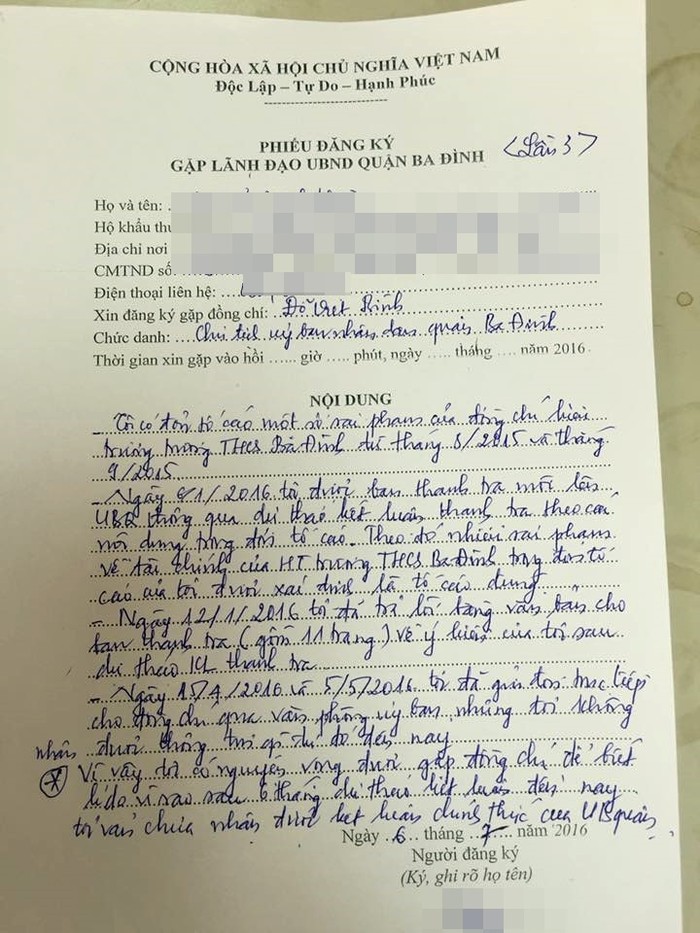 CỘNG HÒA XÃ HỘI CHỦ NGHĨA VIỆT NAM
Độc Lập – Tự Do – Hạnh Phúc
PHIẾU ĐĂNG KÝ
GẶP LÃNH ĐẠO UBND QUẬN BA ĐÌNH <Lần 3>
Họ và tên:
Hộ khẩu thư
Địa chỉ nơi
CMTND số:
Điện thoại liên hệ:
Xin đăng ký gặp đồng chí: Đỗ Viết Bình
Chức danh: Chủ tịch uỷ ban nhân dân quận Ba Đình
Thời gian xin gặp vào hồi ...... giờ ..... phút, ngày ..... tháng ..... năm 2016
NỘI DUNG
Tôi có đơn tố cáo một số sai phạm của đồng chí hiệu
trưởng trường THCS Ba Đình từ tháng 8/2015 và tháng
9/2015
- Ngày 8/1/2016 tôi được ban thanh tra mời lên
UBQ thông qua dự thảo kết luận thanh tra theo các
nội dung trong đơn tố cáo. Theo đó nhiều sai phạm
về tài chính của HT trường THCS Ba Đình trong đơn tố
cáo của tôi được xác định là tố cáo đúng
- Ngày 12/1/2016 tôi đã trả lời bằng văn bản cho
ban thanh tra (gồm 11 trang) về ý kiến của tôi sau
dự thảo KL thanh tra
- Ngày 15/4/2016 và 5/5/2016 tôi đã gửi đơn trực tiếp
cho đồng chí qua văn phòng uỷ ban nhưng tôi không
nhận được thông tin gì từ đó đến nay
* Vì vậy tôi có nguyện vọng được gặp đồng chí để biết
lí do vì sao sau 6 tháng dự thảo kết luận đến nay
tôi vẫn chưa nhận được kết luận chính thức của UB quận
Ngày 6 tháng 7 năm 2016
Người đăng ký
(Ký, ghi rõ họ tên)